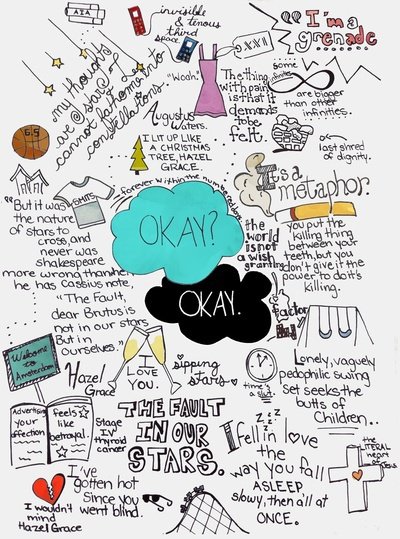 AIA
invisible
& tenous
third
space.
"I'm a
grenade
my thoughts
are stars I
cannot fathom into
constellations.
"Woah."
The thing
with pain
is that it
demands
to be
felt.
Some
infinities
are bigger
than other
infinities.
6.5
Augustus
Waters.
I LIT UP LIKE
A CHRISTMAS
TREE, HAZEL
GRACE.
last shred
of dignity.
It's a
metaphor.
forever within the numbered days
SMITS
"But it was
the nature
of stars to
cross, and
never was
shakespeare
more wrong than when
he has Cassius note,
"The Fault,
dear Brutus is
not in our stars
But in
ourselves."
OKAY?
OKAY.
the
world
is not
a wish
granting
factory
you put the
killing thing
between your
teeth, but you
don't give it the
power to do its
killing.
Welcome
to
Amsterdam
I
LOVE
YOU.
sipping
stars
time's
a slut.
Lonely, vaguely
pedophilic swing
set seeks the
butts of
Children..
Hazel
Grace
Advertising
your
affection
feels
like
betrayal.
Stage
IV
thyroid
cancer
THE FAULT
IN OUR
STARS.
z z z z
I
fell in love
the
way you fall
ASLEEP
slowy, then all at
ONCE.
the
LITERAL
heart
of Jesus
I've
gotten hot
Since you
went blind.
I wouldn't
mind
Hazel Grace